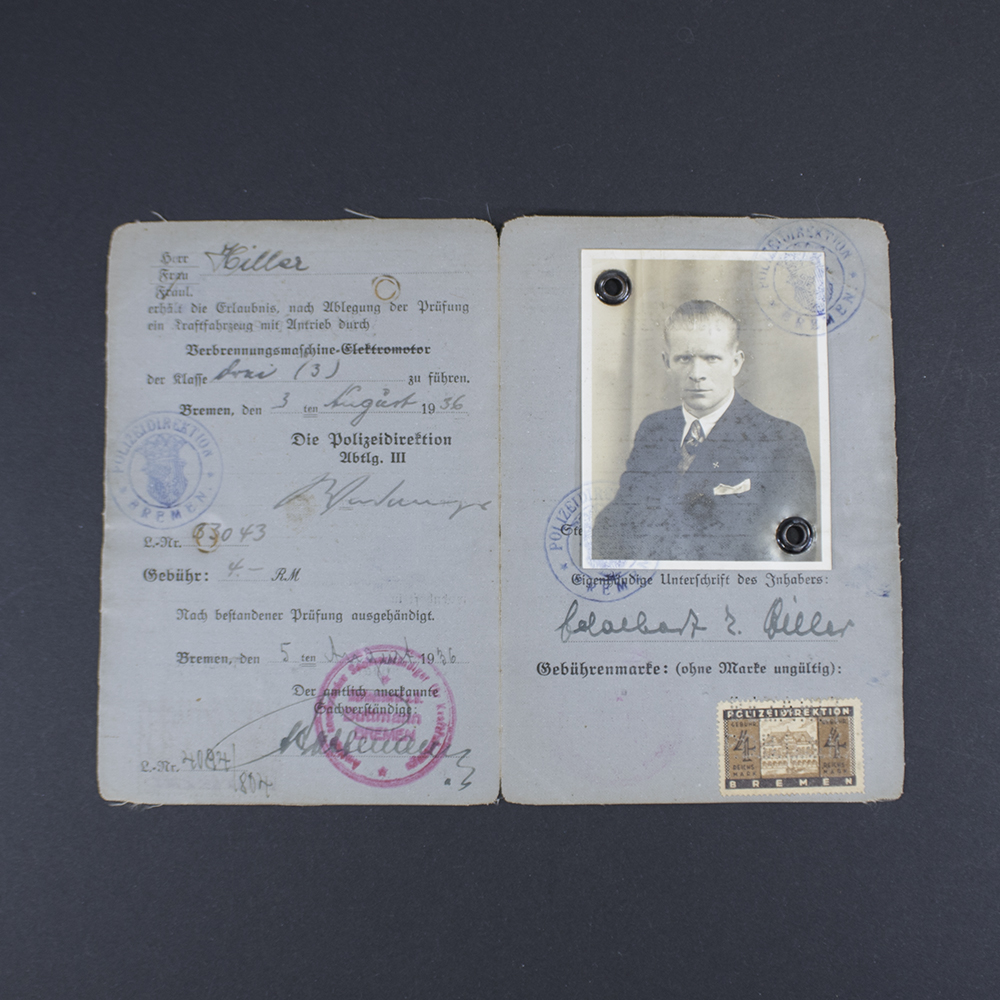 Herr
Frau
Fräul.
Hiller
erhält die Erlaubnis, nach Ablegung der Prüfung
ein Kraftfahrzeug mit Antrieb durch
Verbrennungsmaschine-Elektromotor
der Klasse drei (3) zu führen.
Bremen, den 3 ten August 1936
Die Polizeidirektion
Abtlg. III
POLIZEIDIREKTION
BREMEN
L.-Nr. 63043
Gebühr: 4.— RM
Nach bestandener Prüfung ausgehändigt.
Bremen, den 5 ten August 1936
Der amtlich anerkannte
Sachverständige:
BREMEN
L.-Nr. 4094/
1804
POLIZEIDIREKTION
BREMEN
POLIZEIDIREKTION
BREMEN
Ste
Eigenhändige Unterschrift des Inhabers:
Hiller
Gebührenmarke: (ohne Marke ungültig):
POLIZEIDIREKTION
GEBÜHR GEBÜHR
4 4
REICHS MARK REICHS MARK
BREMEN